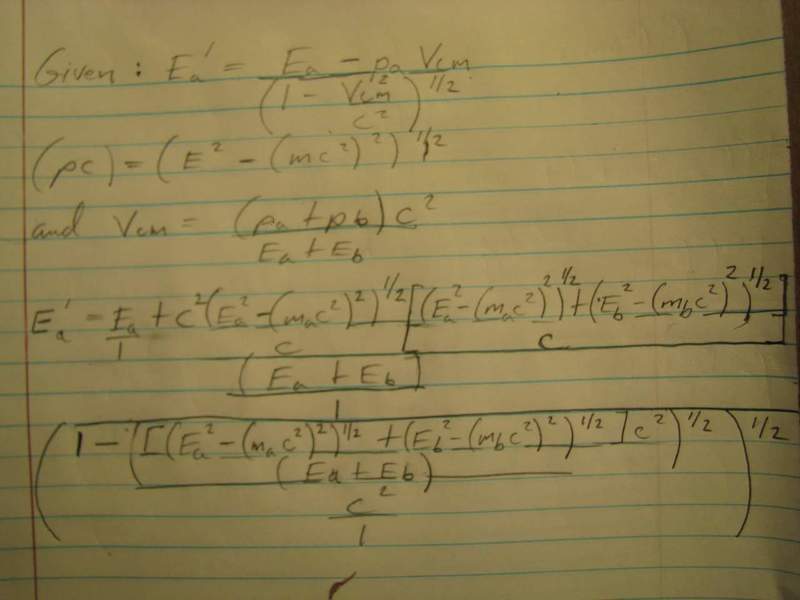 Given : E_a' = (E_a - p_a V_cm) / (1 - V_cm^2 / c^2)^1/2
(pc) = (E^2 - (mc^2)^2)^1/2
and V_cm = (p_a + p_b)c^2 / E_a + E_b
E_a' = E_a / 1 + c^2 (E_a^2 - (m_a c^2)^2)^1/2 / c [(E_a^2 - (m_a c^2)^2)^1/2 + (E_b^2 - (m_b c^2)^2)^1/2] / c
(E_a + E_b)
1
(1 - ([(E_a^2 - (m_a c^2)^2)^1/2 + (E_b^2 - (m_b c^2)^2)^1/2] c^2)^1/2)^1/2
(E_a + E_b)
c^2
1